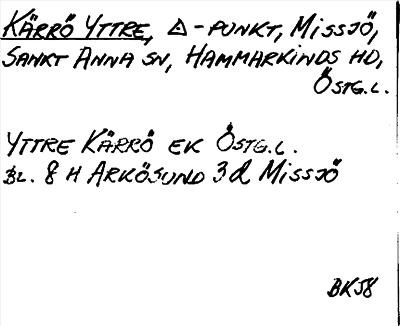 KÄRRÖ YTTRE, △-PUNKT, MISSJÖ,
SANKT ANNA SN, HAMMARKINDS HD,
ÖSTG.L.
YTTRE KÄRRÖ EK ÖSTG.L.
BL. 8 H ARKÖSUND 3d MISSJÖ
BK58